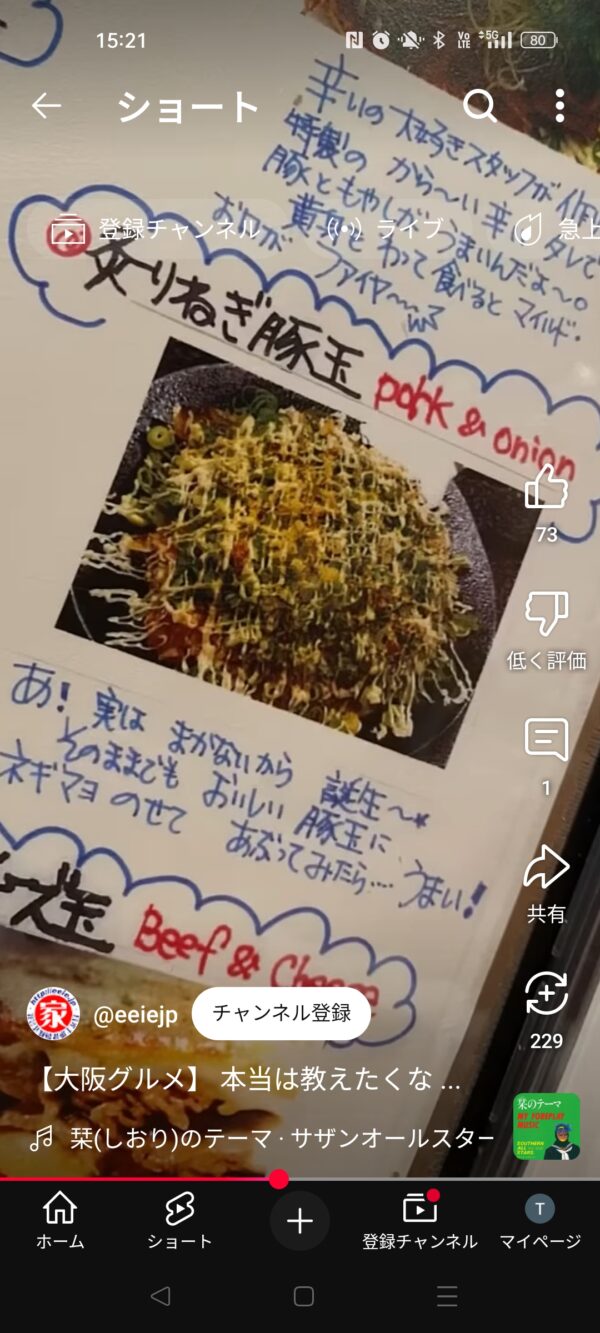 15:21
Vo LTE 5G 80
ショート
辛いの大好きスタッフが作
特製の から〜い辛 タレで
豚ともやしが うまいんだよ〜。
黄 とかって食べると マイルド・
おりが ファイヤ〜〜
登録チャンネル
ライブ
急上
炙りねぎ豚玉 pork & onion
73
低く評価
あ! 実は まかないから 誕生〜*
そのままでも おいしい 豚玉に
ネギマヨ のせて あぶってみたら… うまい!
1
共有
ーズ玉 Beef & Cheese
http://eeie.jp
家
@eeiejp
チャンネル登録
229
【大阪グルメ】 本当は教えたくな ...
栞(しおり)のテーマ · サザンオールスター
栞のテーマ
MY FOREPLAY MUSIC
SOUTHERN ALL STARS
ホーム
ショート
登録チャンネル
T
マイページ